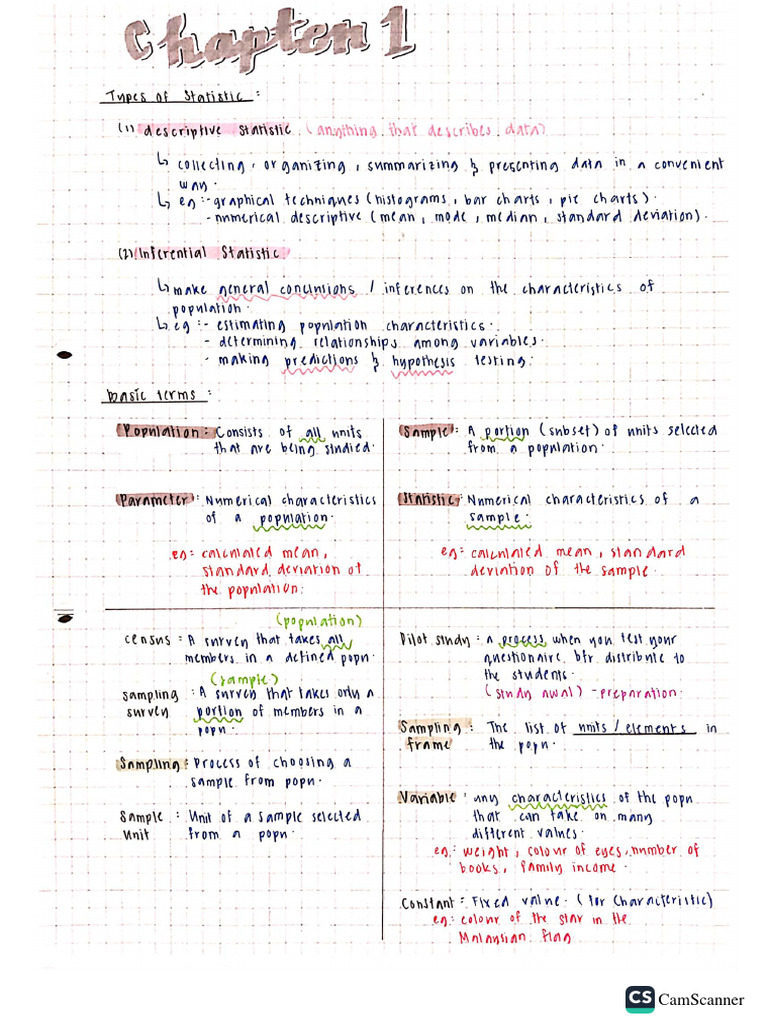 Chapter 1
Types of Statistic :
(1) descriptive statistic (anything that describes data)
↳ collecting, organizing, summarizing & presenting data in a convenient
way.
↳ eg :- graphical techniques (histograms, bar charts, pie charts).
- numerical descriptive (mean, mode, median, standard deviation).
(2) Inferential Statistic
↳ make general conclusions / inferences on the characteristics of
population.
↳ eg :- estimating population characteristics.
- determining relationships among variables.
- making predictions & hypothesis testing.
basic terms :
Population : Consists of all units
that are being studied.
Sample : A portion (subset) of units selected
from a population.
Parameter : Numerical characteristics
of a population.
eg : calculated mean,
standard deviation of
the population.
Statistic : Numerical characteristics of a
sample.
eg : calculated mean, standard
deviation of the sample.
(population)
census : A survey that takes all
members in a defined popn.
(sample)
sampling : A survey that takes only a
survey portion of members in a
popn.
Sampling : Process of choosing a
sample from popn.
Sample : Unit of a sample selected
Unit from a popn.
Pilot study : a process when you test your
questionnaire bfr distribute to
the students.
(study awal) - preparation.
Sampling : The list of units / elements in
frame the popn.
Variable : any characteristics of the popn
that can take on many
different values.
eg : weight, colour of eyes, number of
books, family income.
Constant : Fixed value. (for characteristic)
eg : colour of the star in the
Malaysian flag
CS CamScanner